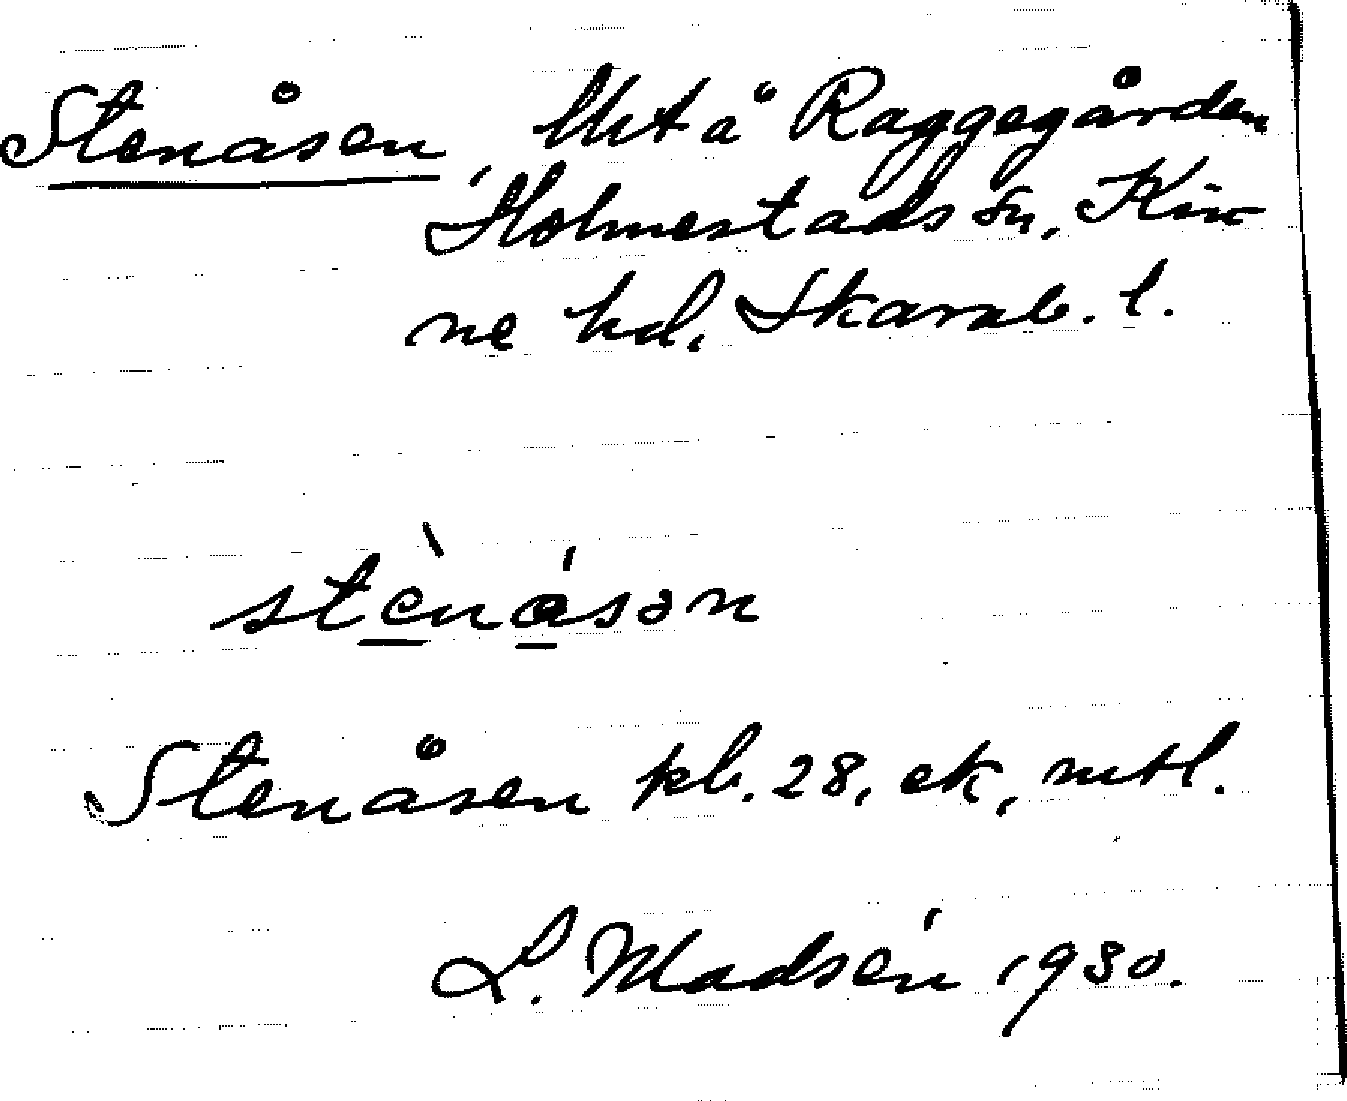 Stenåsen, lht å Raggegården
Holmestads sn, Kin
ne hd, Skarab. l.
stènåsən
Stenåsen kb. 28, ek, mtl.
L. Madsén 1930.